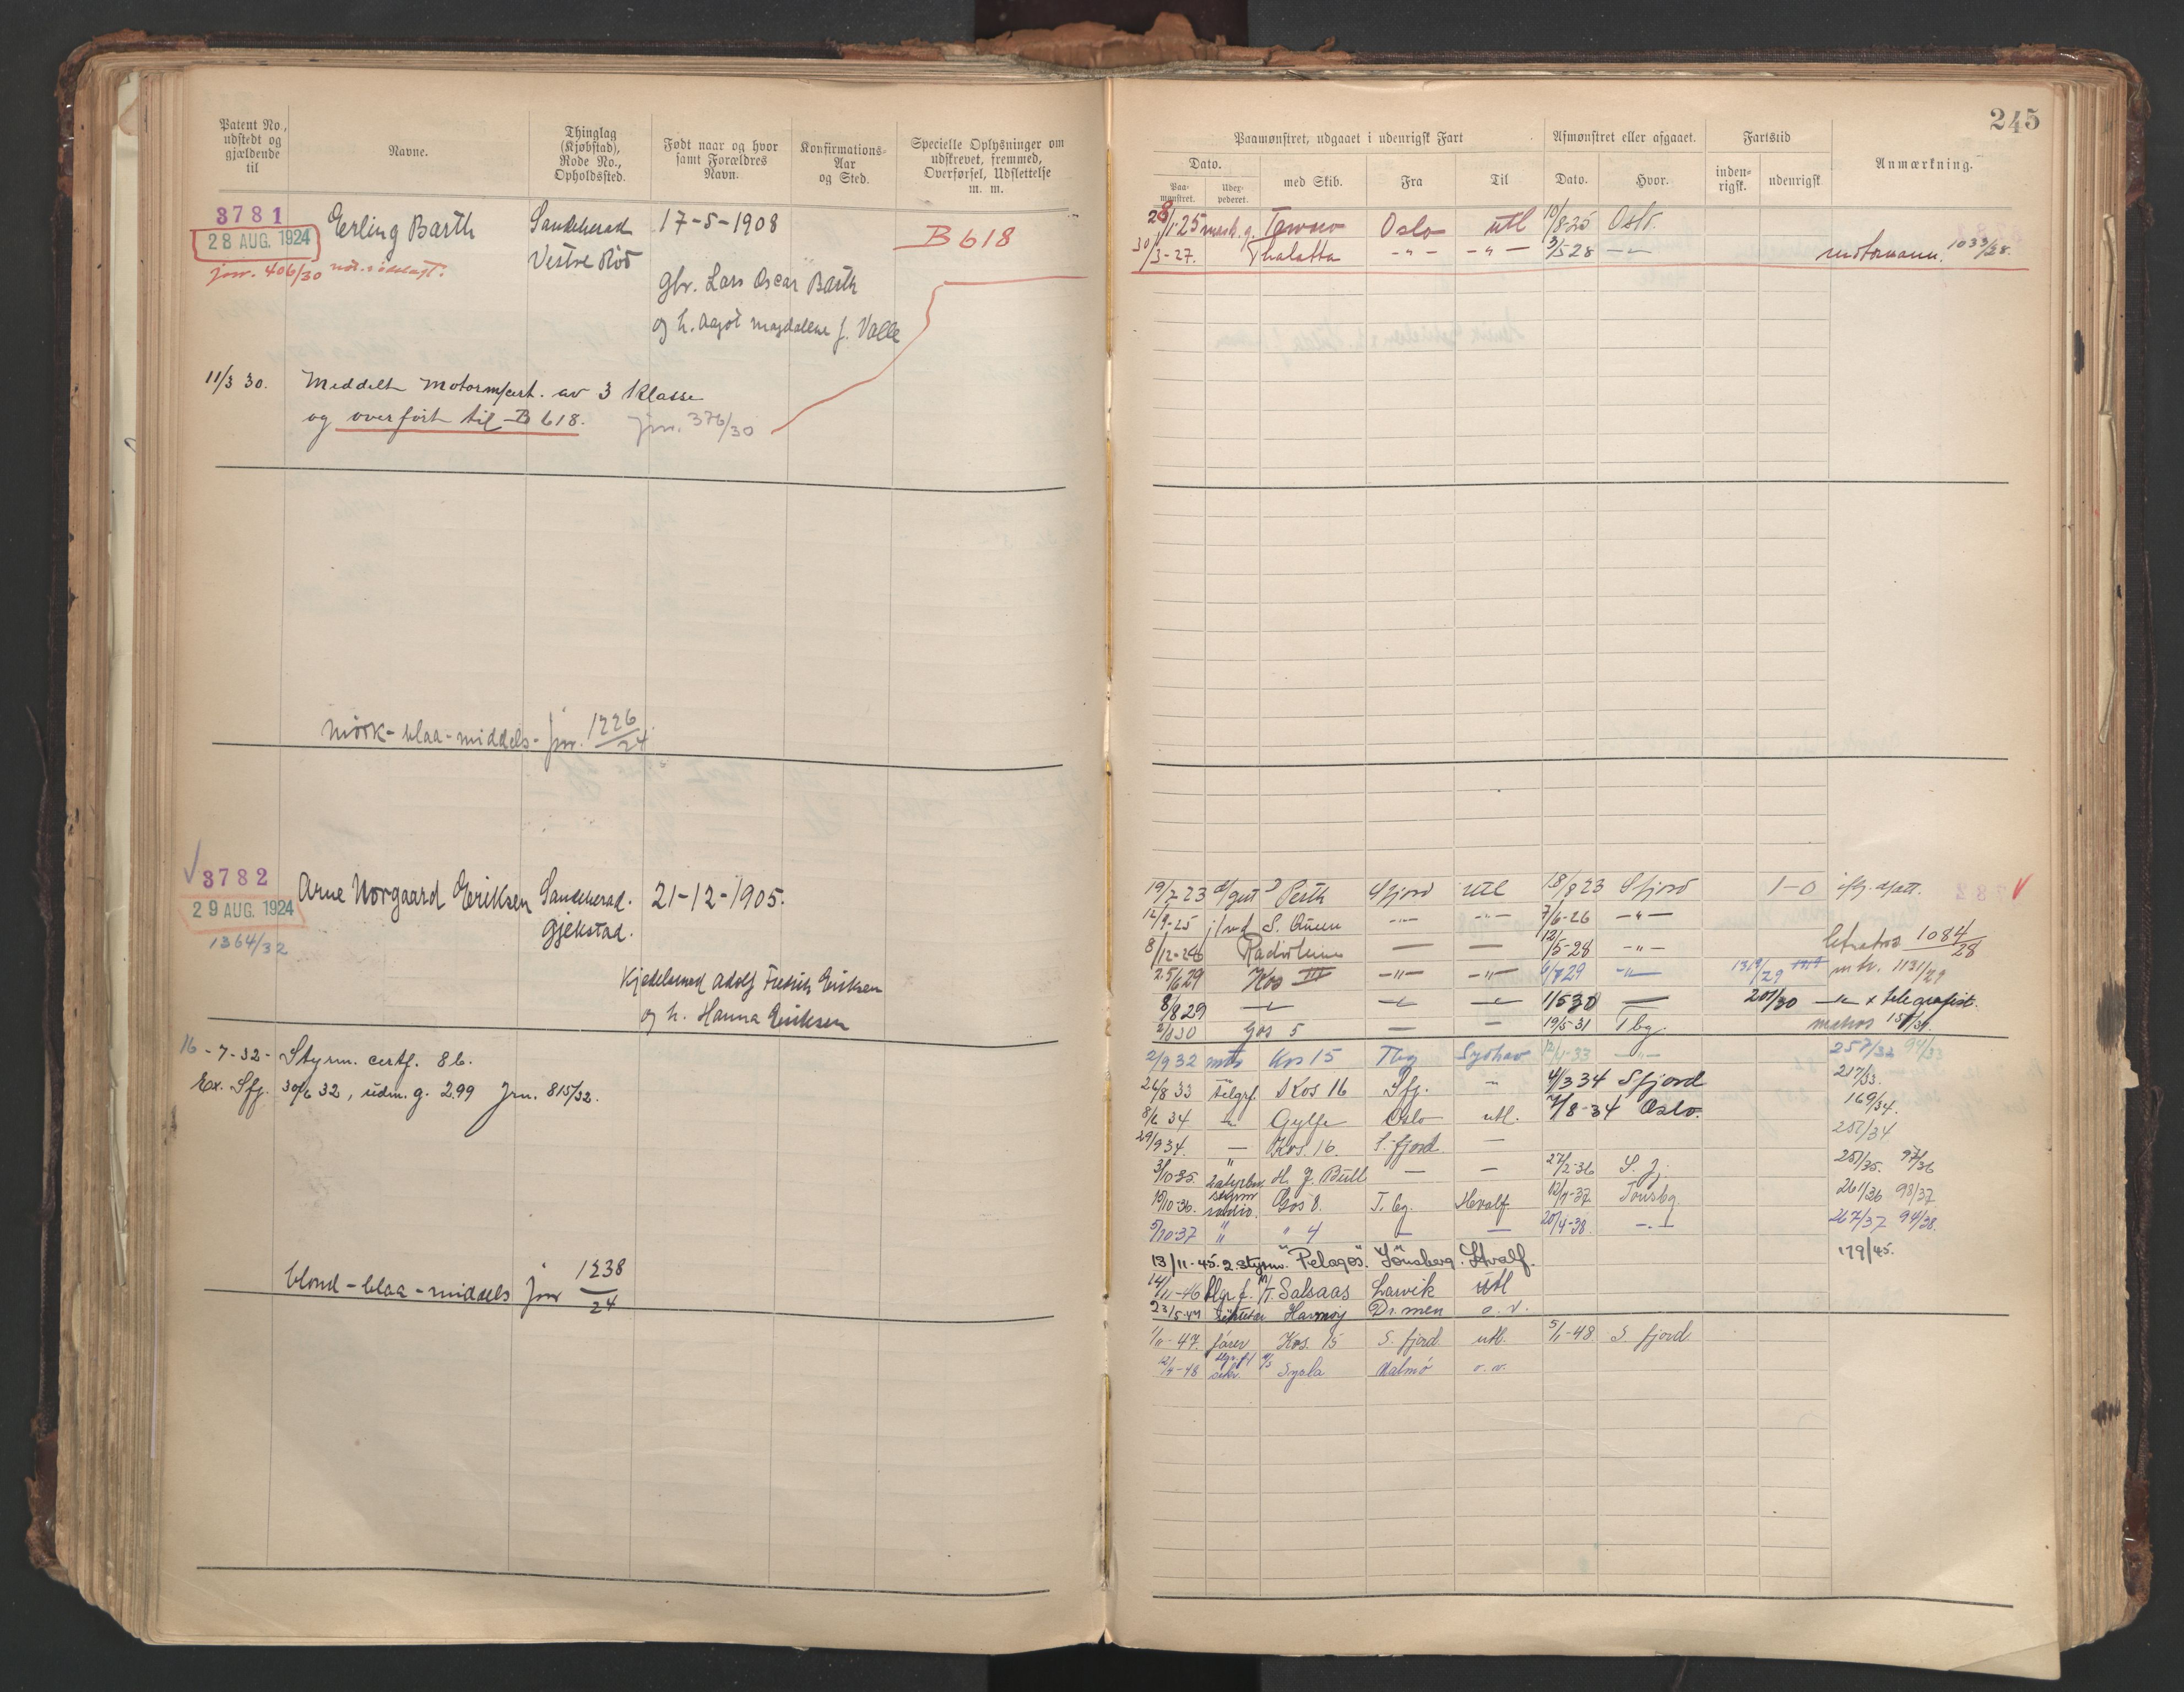 Patent No., udstedt og gjældende til
Navne.
Thinglag (Kjøbstad), Rode No., Opholdssted.
Født naar og hvor samt Forældres Navn.
Konfirmations-Aar og Sted.
Specielle Oplysninger om udskrevet, fremmed, Overførsel, Udslettelse m. m.
3781
28 AUG. 1924
jnr. 406/30
Erling Barth
Sandeherad
Vestre Röd
17-5-1908
gbr. Lars Oscar Barth
og h. Aagot Magdalene f. Valle
B 618
11/3 30. Meddelt motormcert. av 3 Klasse
og overført til B 618. jnr. 376/30
Mörk-blaa-middels- jnr. 1226/24
3782
29 AUG. 1924
1364/32
Arne Norgaard Eriksen
Sandeherad.
Gjekstad.
21-12-1905.
Kjedelsmed Adolf Fredrik Eriksen
og h. Hanna Eriksen
16-7-32- Styrm. certf. 86.
Ex. Sfj. 30/6 32, udm. g. 2.99 Jnr. 815/32.
blond-blaa-middels jnr 1238/24
245
Paamønstret, udgaaet i udenrigsk Fart
Afmønstret eller afgaaet.
Fartstid
Anmærkning.
Dato.
Paa-mønstret.
Udex-pederet.
med Skib.
Fra
Til
Dato.
Hvor.
inden-rigsk.
udenrigsk
28/1-25 Oslo utl 10/8 25 Oslo.
30/3-27. Thalatta -"- -"- 3/5 28 motormann. 1033/28.
19/7 23 d/gut Perth Sfjord utl 18/8 23 Sfjord 1-0
12/9-25 S. Queen -"- -"- 7/6-26 -"-
8/12-26 12/5-28 -"- letmatros 1084/28
25/6 29 Kos III -"- -"- -"- 1131/29
8/8 29 11 5 30 201/30 telegrafist.
Gos 5 19/5-31 Tbg. matros
2/9 32 Kos 15 Tbg Sydhav 12/4-33 257/32 94/33
26/8 33 telgrf. Kos 16 Sfj. 4/3 34 Sfjord 217/33.
8/6 34 Gylfe Oslo utl. 7/8-34 Oslo. 169/34.
29/9 34. Kos. 16. S. fjord 251/34
3/10-35. H. J. Bull 27/2-36 S. fj. 251/35. 97/36
15/10-36. styrm radio. Gos 8. T. bg. Hvalf. 12/4-37 Tønsbg. 261/36 98/37
5/10-37 " " 4 20/4-38. 267/37 94/38.
13/11-45. 2 styrm. "Pelagos" Tönsberg. Hvalf. 179/45.
14/11-46 M/T Salsaas Larvik utl
23/5-47 Havmøy Dr.men o. v.
1/11-47. fører Kos. 15 S. fjord utl. 5/1-48 S. fjord.
12/4-48 Sysla Malmö o. v.